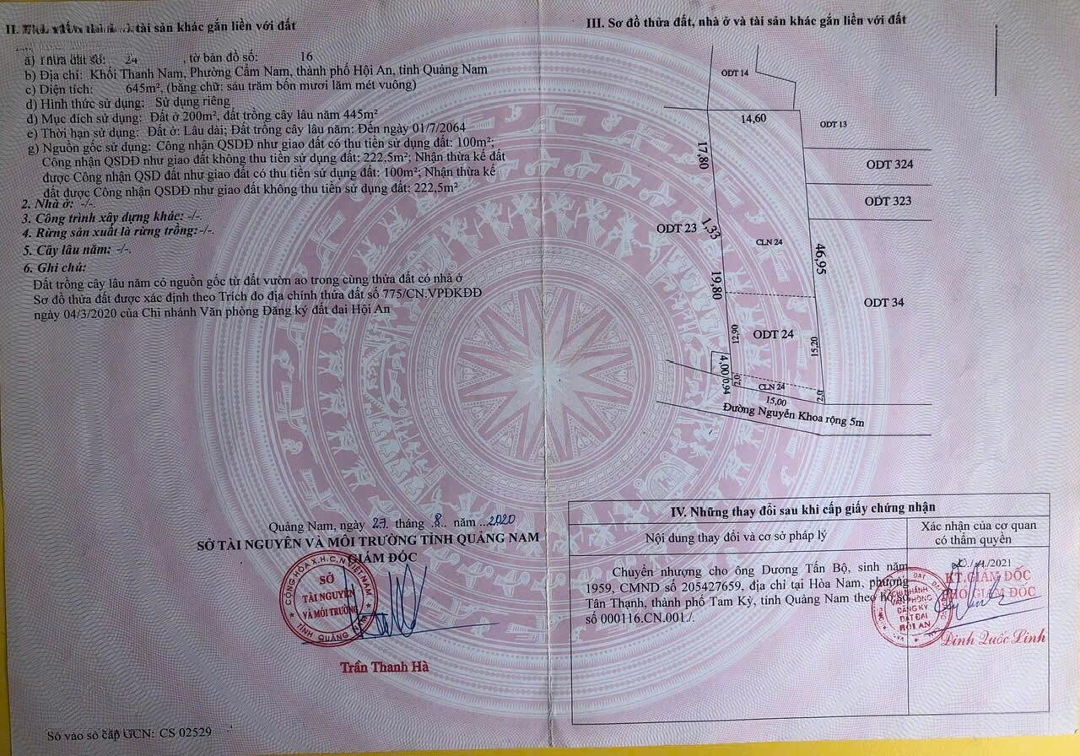 II. tài sản khác gắn liền với đất
a) Thửa đất số: 24 , tờ bản đồ số: 16
b) Địa chỉ: Khối Thanh Nam, Phường Cẩm Nam, thành phố Hội An, tỉnh Quảng Nam
c) Diện tích: 645m², (bằng chữ: sáu trăm bốn mươi lăm mét vuông)
d) Hình thức sử dụng: Sử dụng riêng
đ) Mục đích sử dụng: Đất ở 200m², đất trồng cây lâu năm 445m²
e) Thời hạn sử dụng: Đất ở: Lâu dài; Đất trồng cây lâu năm: Đến ngày 01/7/2064
g) Nguồn gốc sử dụng: Công nhận QSDĐ như giao đất có thu tiền sử dụng đất: 100m²;
Công nhận QSDĐ như giao đất không thu tiền sử dụng đất: 222,5m²; Nhận thừa kế đất
được Công nhận QSD đất như giao đất có thu tiền sử dụng đất: 100m²; Nhận thừa kế
đất được Công nhận QSDĐ như giao đất không thu tiền sử dụng đất: 222,5m²
2. Nhà ở: -/-
3. Công trình xây dựng khác: -/-
4. Rừng sản xuất là rừng trồng:-/-
5. Cây lâu năm: -/-
6. Ghi chú:
Đất trồng cây lâu năm có nguồn gốc từ đất vườn ao trong cùng thửa đất có nhà ở
Sơ đồ thửa đất được xác định theo Trích đo địa chính thửa đất số 775/CN.VPĐKĐĐ
ngày 04/3/2020 của Chi nhánh Văn phòng Đăng ký đất đai Hội An
Quảng Nam, ngày 27 tháng 8 năm 2020
SỞ TÀI NGUYÊN VÀ MÔI TRƯỜNG TỈNH QUẢNG NAM
GIÁM ĐỐC
CỘNG HÒA X.H.C.N VIỆT NAM
SỞ
TÀI NGUYÊN
VÀ MÔI TRƯỜNG
TỈNH QUẢNG NAM
Trần Thanh Hà
Số vào sổ cấp GCN: CS 02529
III. Sơ đồ thửa đất, nhà ở và tài sản khác gắn liền với đất
ODT 14
14,60
ODT 13
17,80
ODT 324
ODT 323
ODT 23
1,33
CLN 24
46,95
19,80
ODT 34
12,90
ODT 24
15,20
4,00
0,94
2,0
CLN 24
2,0
15,00
Đường Nguyễn Khoa rộng 5m
IV. Những thay đổi sau khi cấp giấy chứng nhận
Nội dung thay đổi và cơ sở pháp lý
Xác nhận của cơ quan
có thẩm quyền
Chuyển nhượng cho ông Dương Tấn Bộ, sinh năm
1959, CMND số 205427659, địa chỉ tại Hòa Nam, phường
Tân Thạnh, thành phố Tam Kỳ, tỉnh Quảng Nam theo hồ sơ
số 000116.CN.001/.
/2021
KT.GIÁM ĐỐC
PHÓ GIÁM ĐỐC
CHI NHÁNH
VĂN PHÒNG
ĐĂNG KÝ
ĐẤT ĐAI
HỘI AN
Đinh Quốc Linh